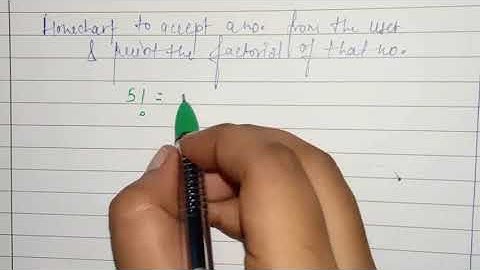 Flowchart to accept a no. from the user
& print the factorial of that no.
5! =